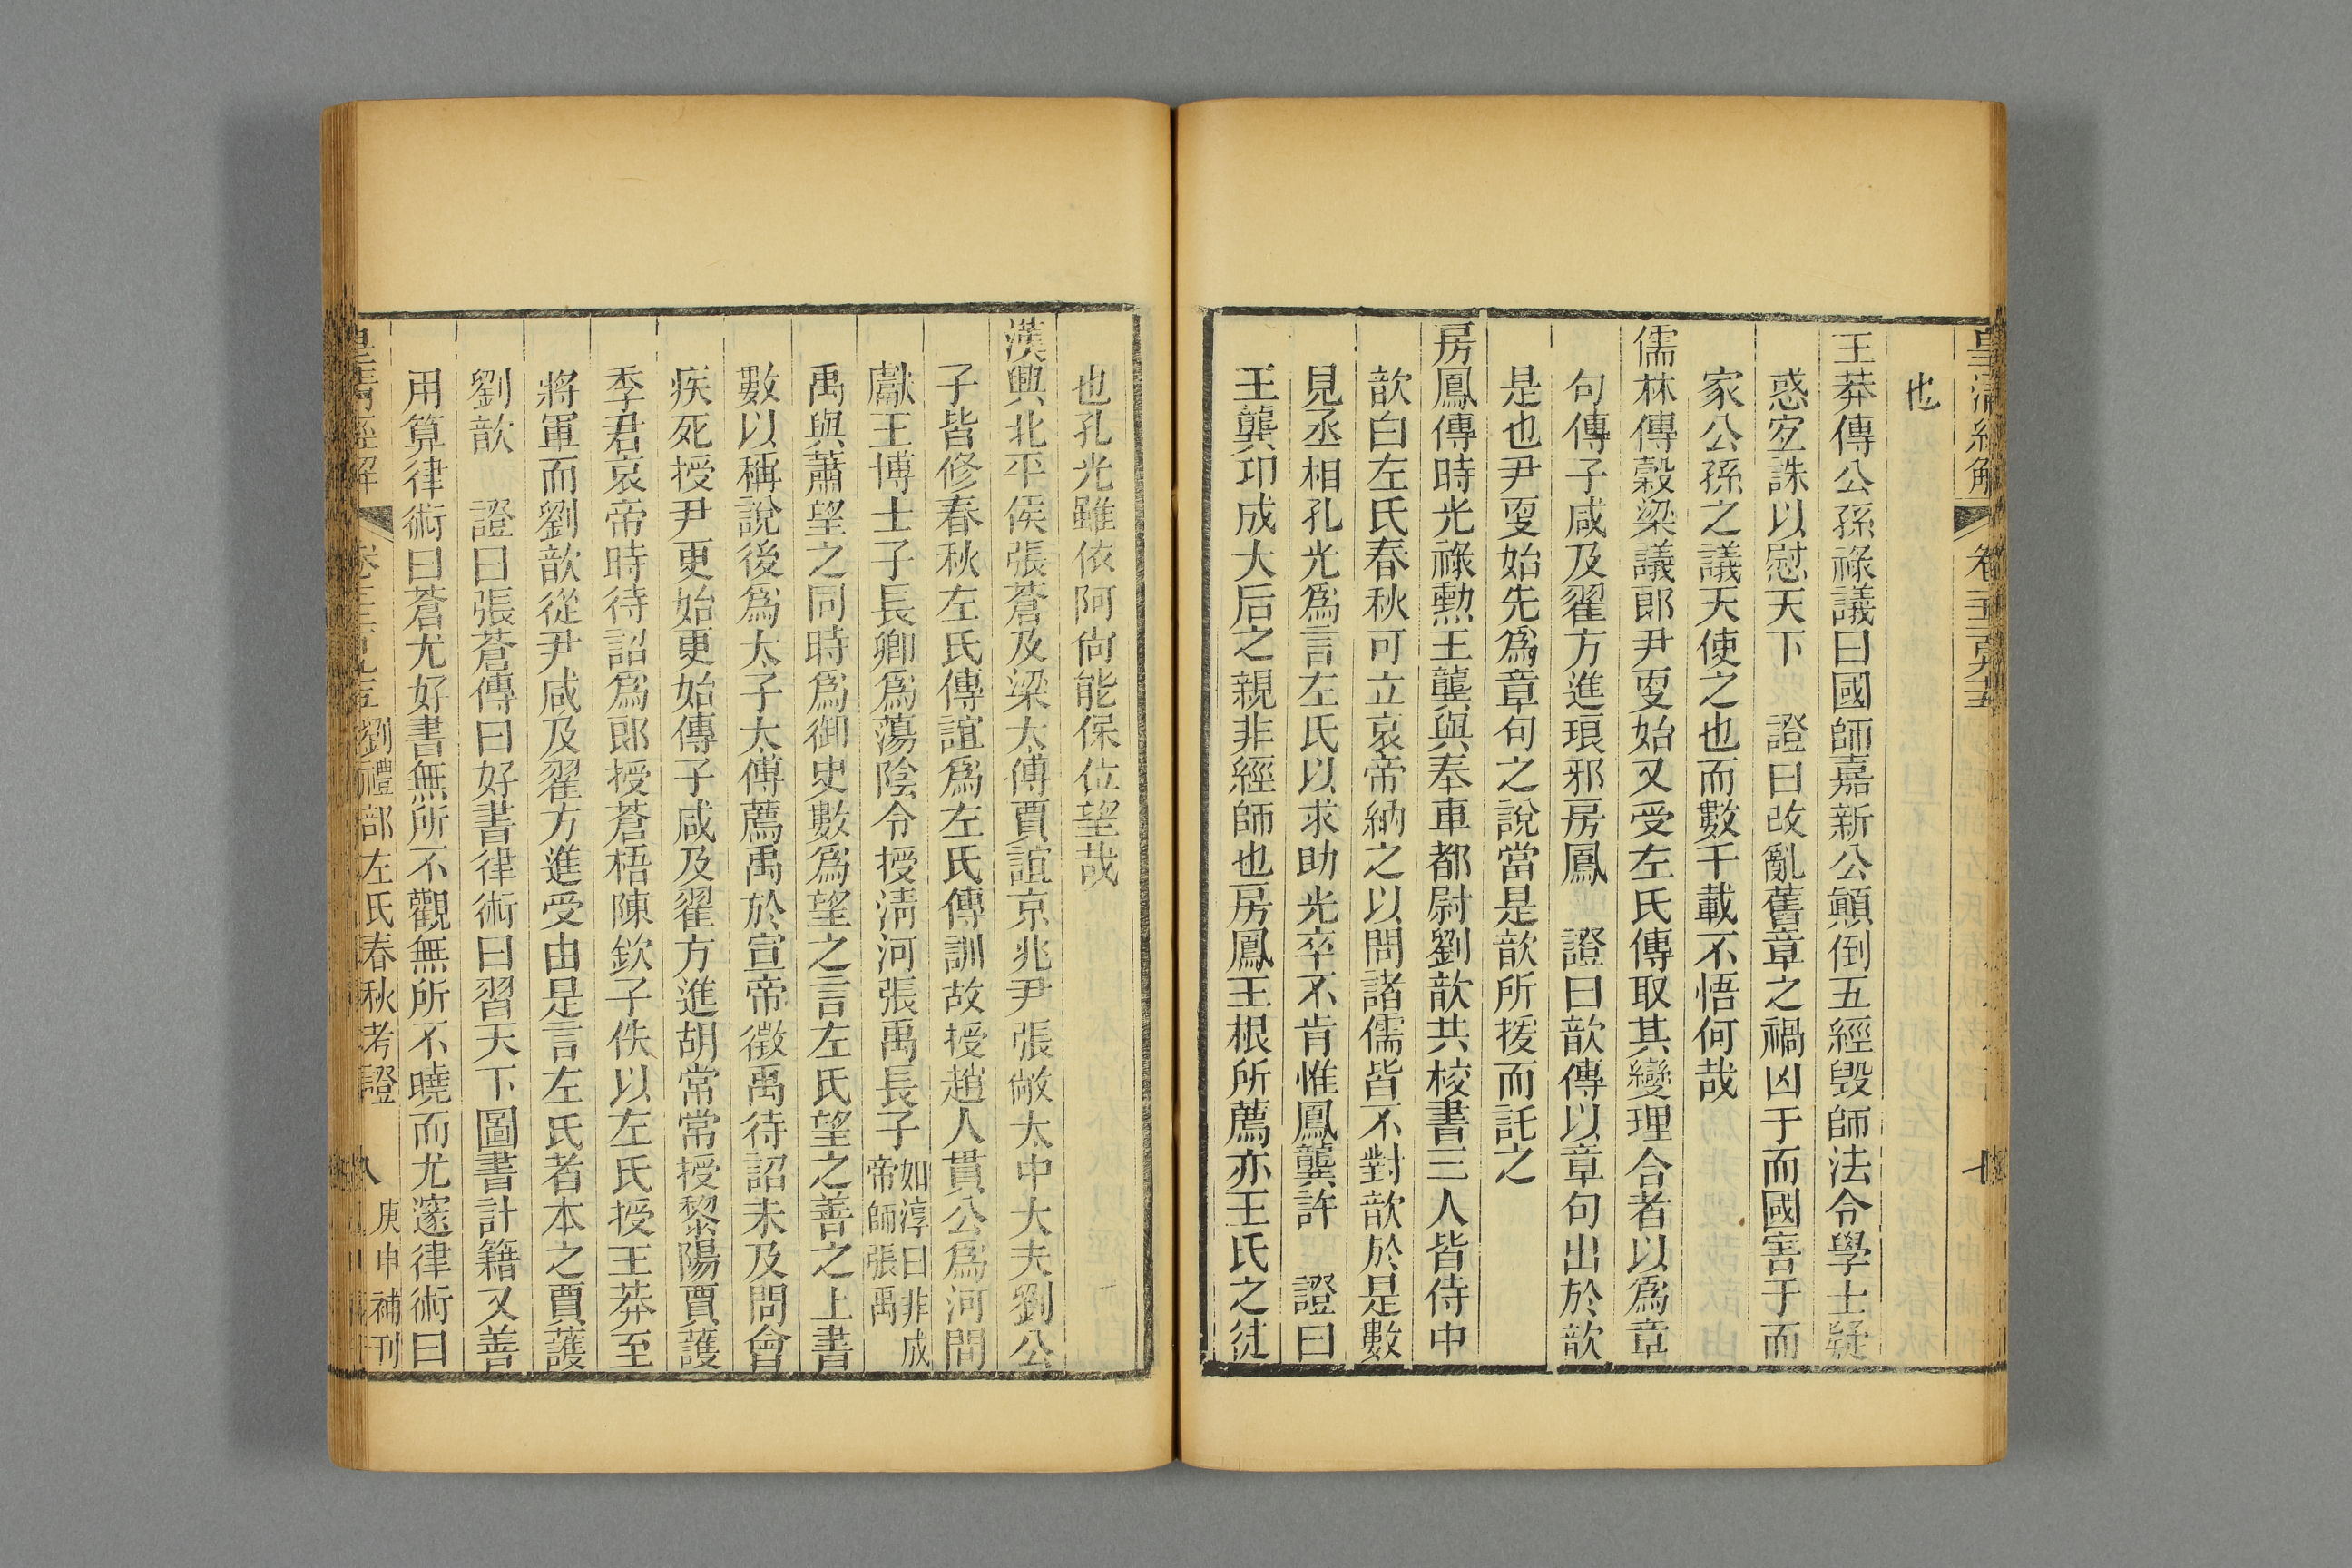 皇清經解 卷千二百九十五 七
也
王莽傳公孫祿議曰國師嘉新公顚倒五經毀師法令學士疑
惑宐誅以慰天下 證曰改亂舊章之禍凶于而國害于而
家公孫之議天使之也而數千載不悟何哉
儒林傳穀梁議郎尹叓始又受左氏傳取其變理合者以爲章
句傳子咸及翟方進琅邪房鳳 證曰歆傳以章句出於歆
是也尹叓始先爲章句之說當是歆所援而託之
房鳳傳時光祿勲王龔與奉車都尉劉歆共校書三人皆侍中
歆白左氏春秋可立哀帝納之以問諸儒皆不對歆於是數
見丞相孔光爲言左氏以求助光卒不肯惟鳳龔許 證曰
王龔邛成大后之親非經師也房鳳王根所薦亦王氏之徒
也孔光雖依阿尙能保位望哉
漢興北平侯張蒼及梁大傅賈誼京兆尹張敞太中大夫劉公
子皆修春秋左氏傳誼爲左氏傳訓故授趙人貫公爲河間
獻王博士子長卿爲蕩陰令授淸河張禹長子如淳曰非成帝師張禹
禹與蕭望之同時爲御史數爲望之言左氏望之善之上書
數以稱說後爲太子太傅薦禹於宣帝徵禹待詔未及問會
疾死授尹更始更始傳子咸及翟方進胡常常授黎陽賈護
季君哀帝時待詔爲郎授蒼梧陳欽子佚以左氏授王莽至
將軍而劉歆從尹咸及翟方進受由是言左氏者本之賈護
劉歆 證曰張蒼傳曰好書律術曰習天下圖書計籍又善
用算律術曰蒼尤好書無所不觀無所不曉而尤邃律術曰
皇清經解 卷千二百九十五 劉禮部左氏春秋考證 八 庚申補刊